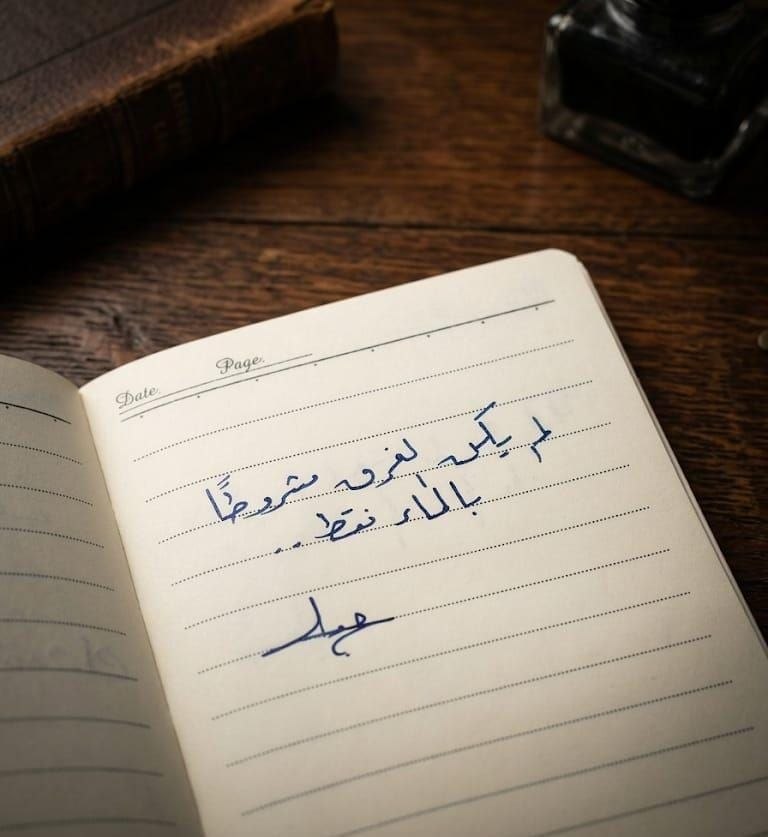 Date. Page.
لم يكن الغرق مشروطًا
بالماء فقط..